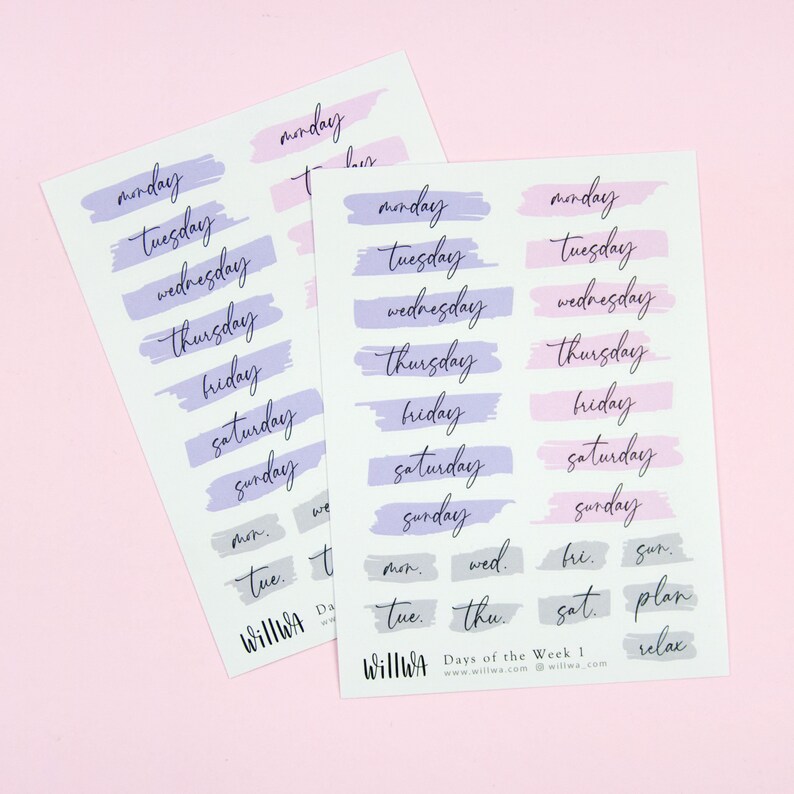 monday
tuesday
wednesday
thursday
friday
saturday
sunday
mon.
tue.
monday
WillWA
monday
tuesday
wednesday
thursday
friday
saturday
sunday
monday
tuesday
wednesday
thursday
friday
saturday
sunday
mon. wed. fri. sun.
tue. thu. sat. plan
relax
WillWA Days of the Week 1
www.willwa.com willwa_com